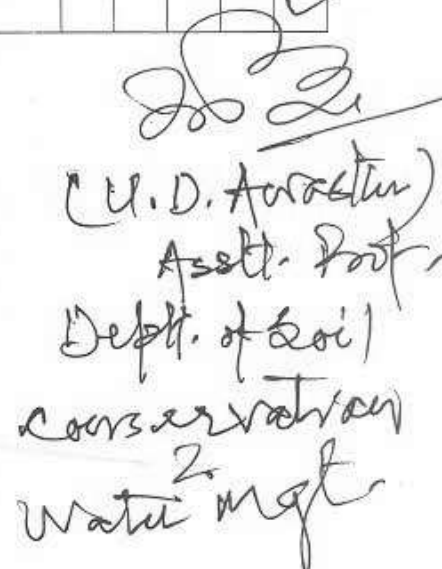 (U.D. Awasthi)
Asstt. Prof.
Deptt. of Soil
conservation
&
Water Mgt.